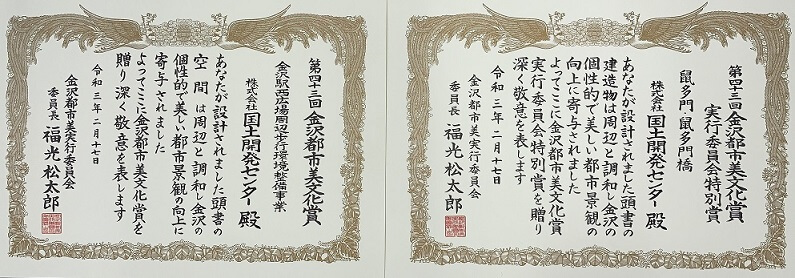 第四十三回 金沢都市美文化賞
実行委員会特別賞
鼠多門・鼠多門橋
株式会社 国土開発センター 殿
あなたが設計されました頭書の
建造物は周辺と調和し金沢の
個性的で美しい都市景観の
向上に寄与されました
よってここに金沢都市美文化賞
実行委員会特別賞を贈り
深く敬意を表します
令和三年二月十七日
金沢都市美実行委員会
委員長 福光松太郎
第四十三回 金沢都市美文化賞
金沢駅西広場周辺歩行環境整備事業
株式会社 国土開発センター 殿
あなたが設計されました頭書の
空間は周辺と調和し金沢の
個性的で美しい都市景観の向上に
寄与されました
よってここに金沢都市美文化賞を
贈り深く敬意を表します
令和三年二月十七日
金沢都市美実行委員会
委員長 福光松太郎